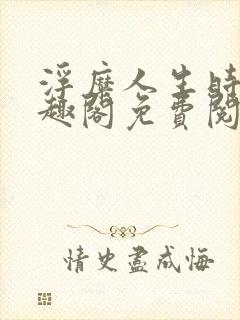 浮靡人生時
趣閣免費閱
情史盡成悔